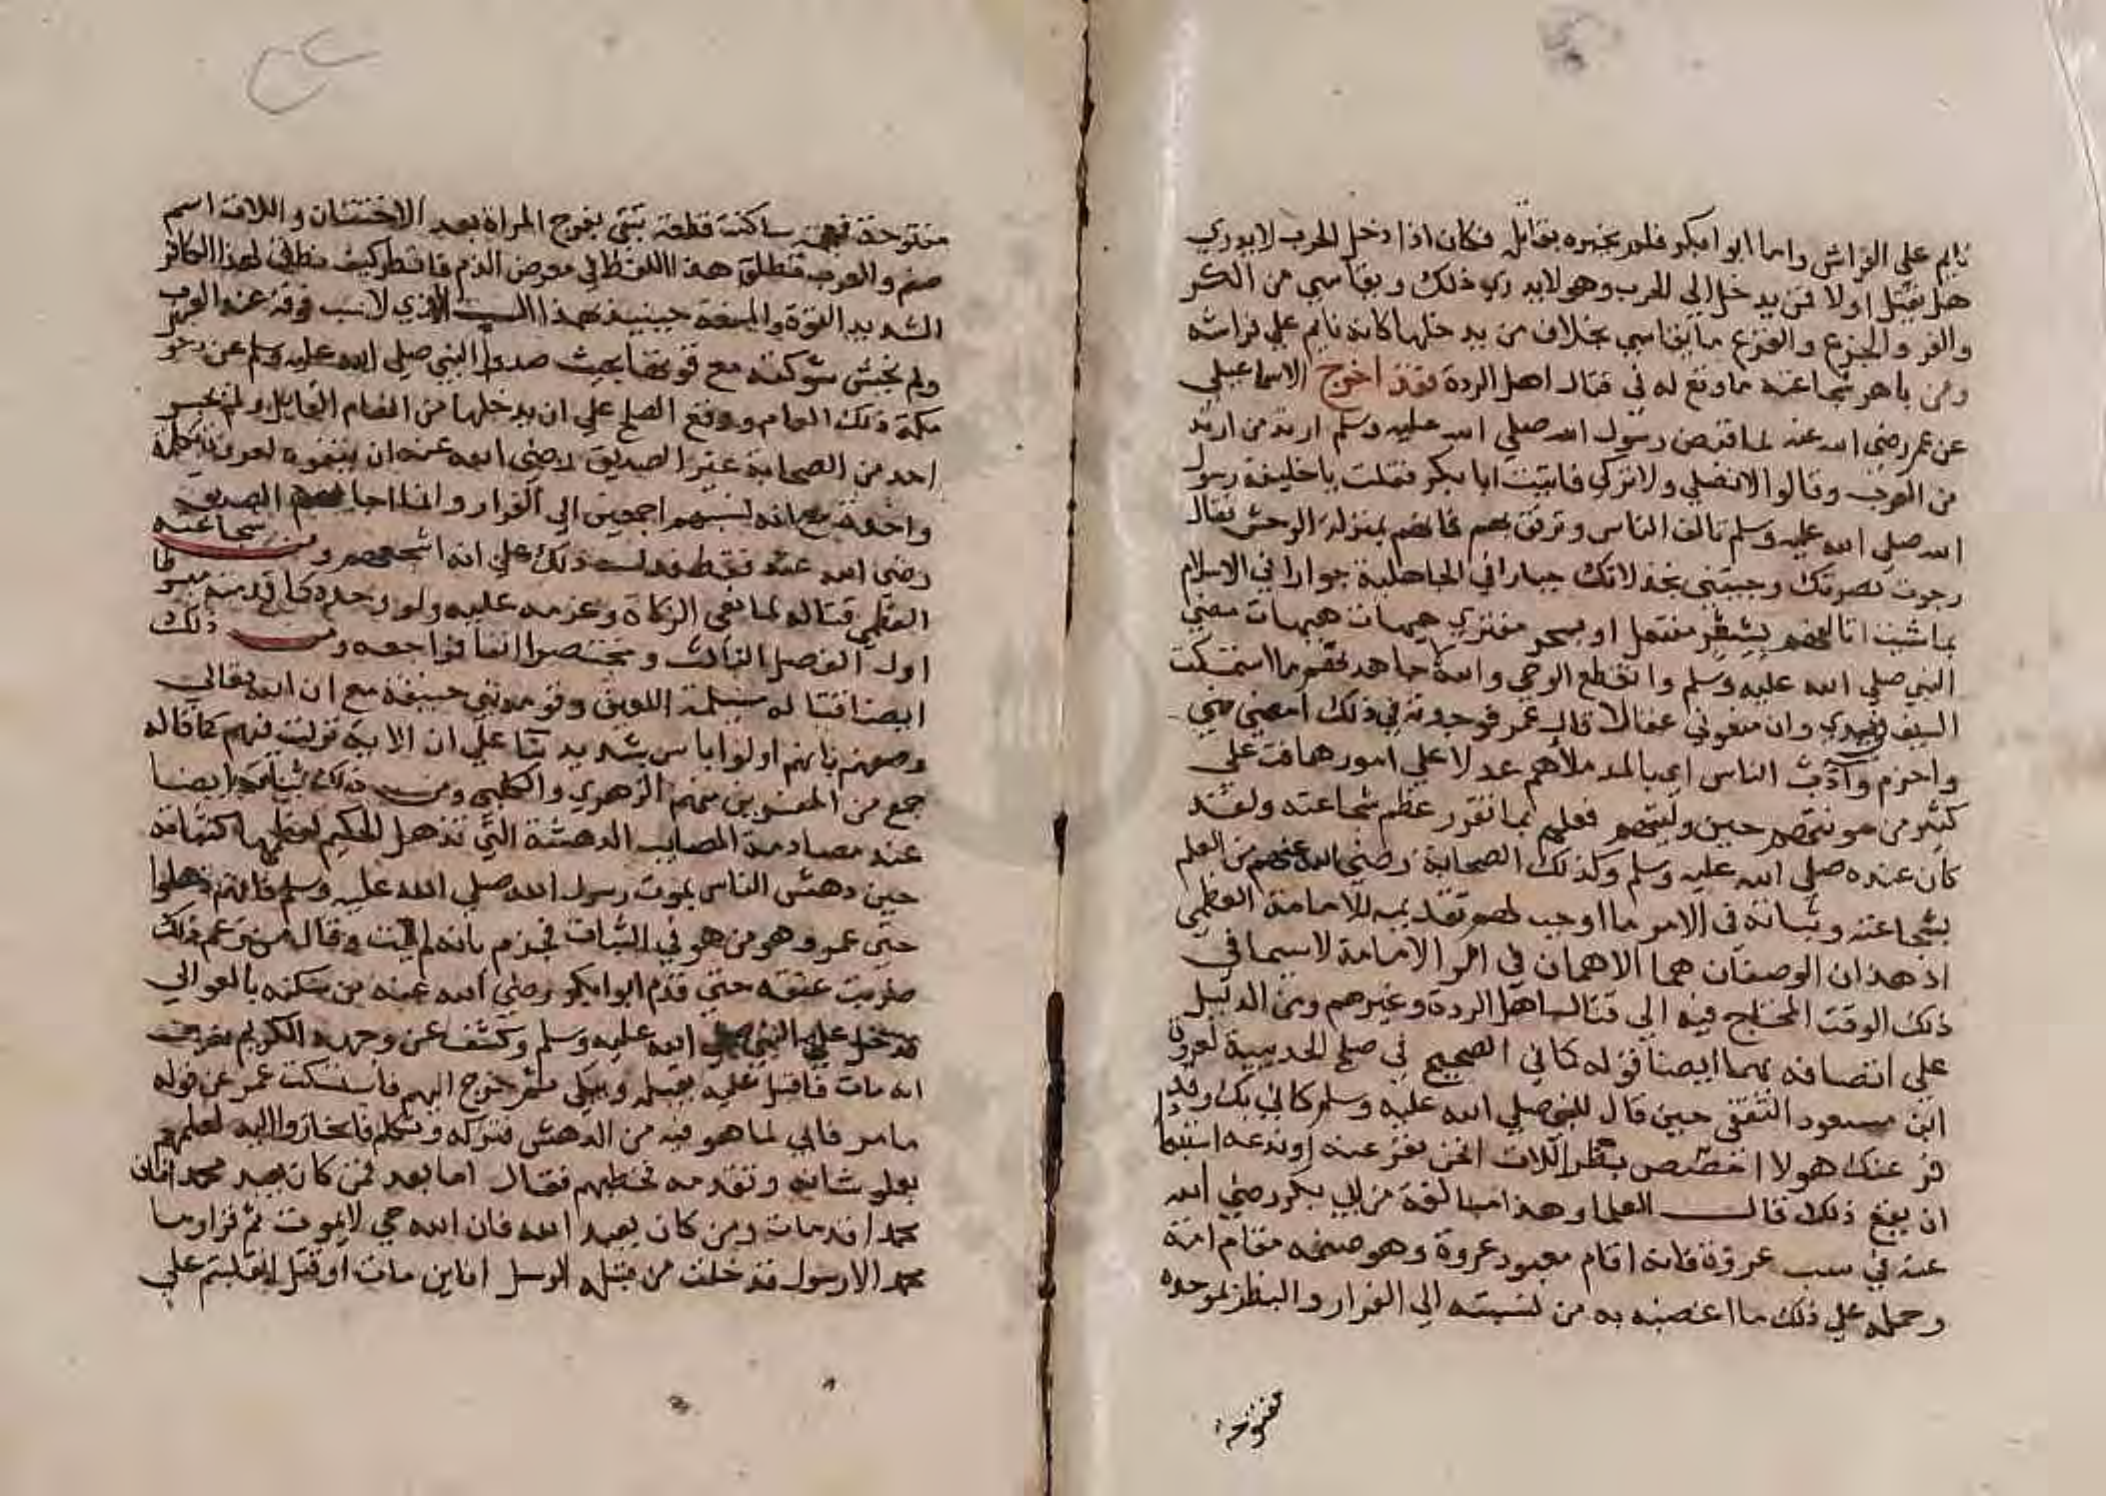 نايم علي الفراش واما ابوابكر فلم يخبره بقاتل فكان اذا دخل الحرب لا يدري
هل يقتل اولا فمن يدخل الي الحرب وهو لا يدري ذلك ويقاسي من الكر
والفر والجزع والفزع ما يقاسي بخلاف من يدخلها كانه نايم علي فراشه
ومن باهر شجاعته ما وقع له في قتال اهل الردة فقد اخرج الاسماعيلي
عن عمر رضي الله عنه لما قبض رسول الله صلي الله عليه وسلم ارتد من ارتد
من العرب وقالوا لا نصلي ولا نزكي فاتيت ابا بكر فقلت يا خليفة رسول
الله صلي الله عليه وسلم تالف الناس وترفق بهم فانهم بمنزلة الوحش فقال
رجوت نصرتك وجيتني بخذلانك جبارا في الجاهلية خوارا في الاسلام
بما شيت اتالفهم بشعر مفتعل او بسحر مفتري هيهات هيهات مضي
النبي صلي الله عليه وسلم وانقطع الوحي والله لاجاهدنهم ما استمسكت
السيف في يدي وان منعوني عقالا قال عمر فوجدته في ذلك امضي مني
واحزم وآدب الناس اي بالمد ملأهم عدلا علي امور هانت علي
كثير من مونتهم حين وليتهم فعلم بما تقرر عظم شجاعته ولقد
كان عنده صلي الله عليه وسلم وكذلك الصحابة رضي الله عنهم من العلم
بشجاعته وثباته في الامر ما اوجب لهم تقديمه للامامة العظمي
اذ هذان الوصفان هما الاهمان في امر الامامة لا سيما في
ذلك الوقت المحتاج فيه الي قتال اهل الردة وغيرهم ومن الدليل
علي اتصافه بهما ايضا قوله كما في الصحيح في صلح الحديبية لعروة
ابن مسعود الثقفي حين قال للنبي صلي الله عليه وسلم كاني بك وقد
فر عنك هولا امصص بظر اللات انحن نفر عنه او ندعه استبعاد
ان يقع ذلك قال العلما وهذا مبالغة من ابي بكر رضي الله
عنه في سب عروة فانه اقام معبود عروة وهو صنمه مقام امه
وحمله علي ذلك ما اغضبه به من نسبته الي الفرار والبظر بموحده
مفتوحه
مفتوحة فمعجمة ساكنة قطعة تبقي بفرج المراة بعد الاختتان واللات اسم
صنم والعرب تطلق هذا اللفظ في معرض الذم فانظر كيف نطق لهذا الكافر
الشديد القوة والمنعة حينيذ بهذا السب الذي لا سب فوقه عند العرب
ولم يخش شوكته مع قوتها بحيث صدوا النبي صلي الله عليه وسلم عن دخول
مكة ذلك العام ووقع الصلح علي ان يدخلها من العام القابل ولم يجسر
احد من الصحابة غير الصديق رضي الله عنه ان يتفوه لعروة بكلمة
واحدة مع انه نسبهم اجمعين الي الفرار وانما اجابهم الصديق
رضي الله عنه فقط فدل ذلك علي انه اشجعهم ومن شجاعته
العظمي قتاله لمانعي الزكاة وعزمه عليه ولو وحده كما قدمته مبسوطا
اول الفصل الثالث ومختصرا انفا فراجعه ومن ذلك
ايضا قتاله مسيلمة اللعين وقومه بني حنيفة مع ان الله تعالي
وصفهم بانهم اولوا باس شديد بنا علي ان الاية نزلت فيهم كما قاله
جمع من المفسرين منهم الزهري والكلبي ومن ذلك ثباته ايضا
عند مصادمة المصايب الدهشة التي تذهل الحكيم لعظمها كثباته
حين دهش الناس بموت رسول الله صلي الله عليه وسلم فانهم ذهلوا
حتي عمر وهو من هو في الثبات فجزم بانه لم يمت وقال من زعم ذلك
ضربت عنقه حتي قدم ابوابكر رضي الله عنه من مسكنه بالعوالي
فدخل علي النبي صلي الله عليه وسلم وكشف عن وجهه الكريم فعرف
انه مات فاقبل عليه يقبله ويبكي ثم خرج اليهم فاستسكت عمر عن قوله
ما مر فابي لما هو فيه من الدهش فتركه وتكلم فانحازوا اليه لعلمهم
بعلو شانه وتقدمه فخطبهم فقال اما بعد فمن كان يعبد محمدا فان
محمدا قد مات ومن كان يعبد الله فان الله حي لا يموت ثم قرا وما
محمد الا رسول قد خلت من قبله الرسل افاين مات او قتل انقلبتم علي